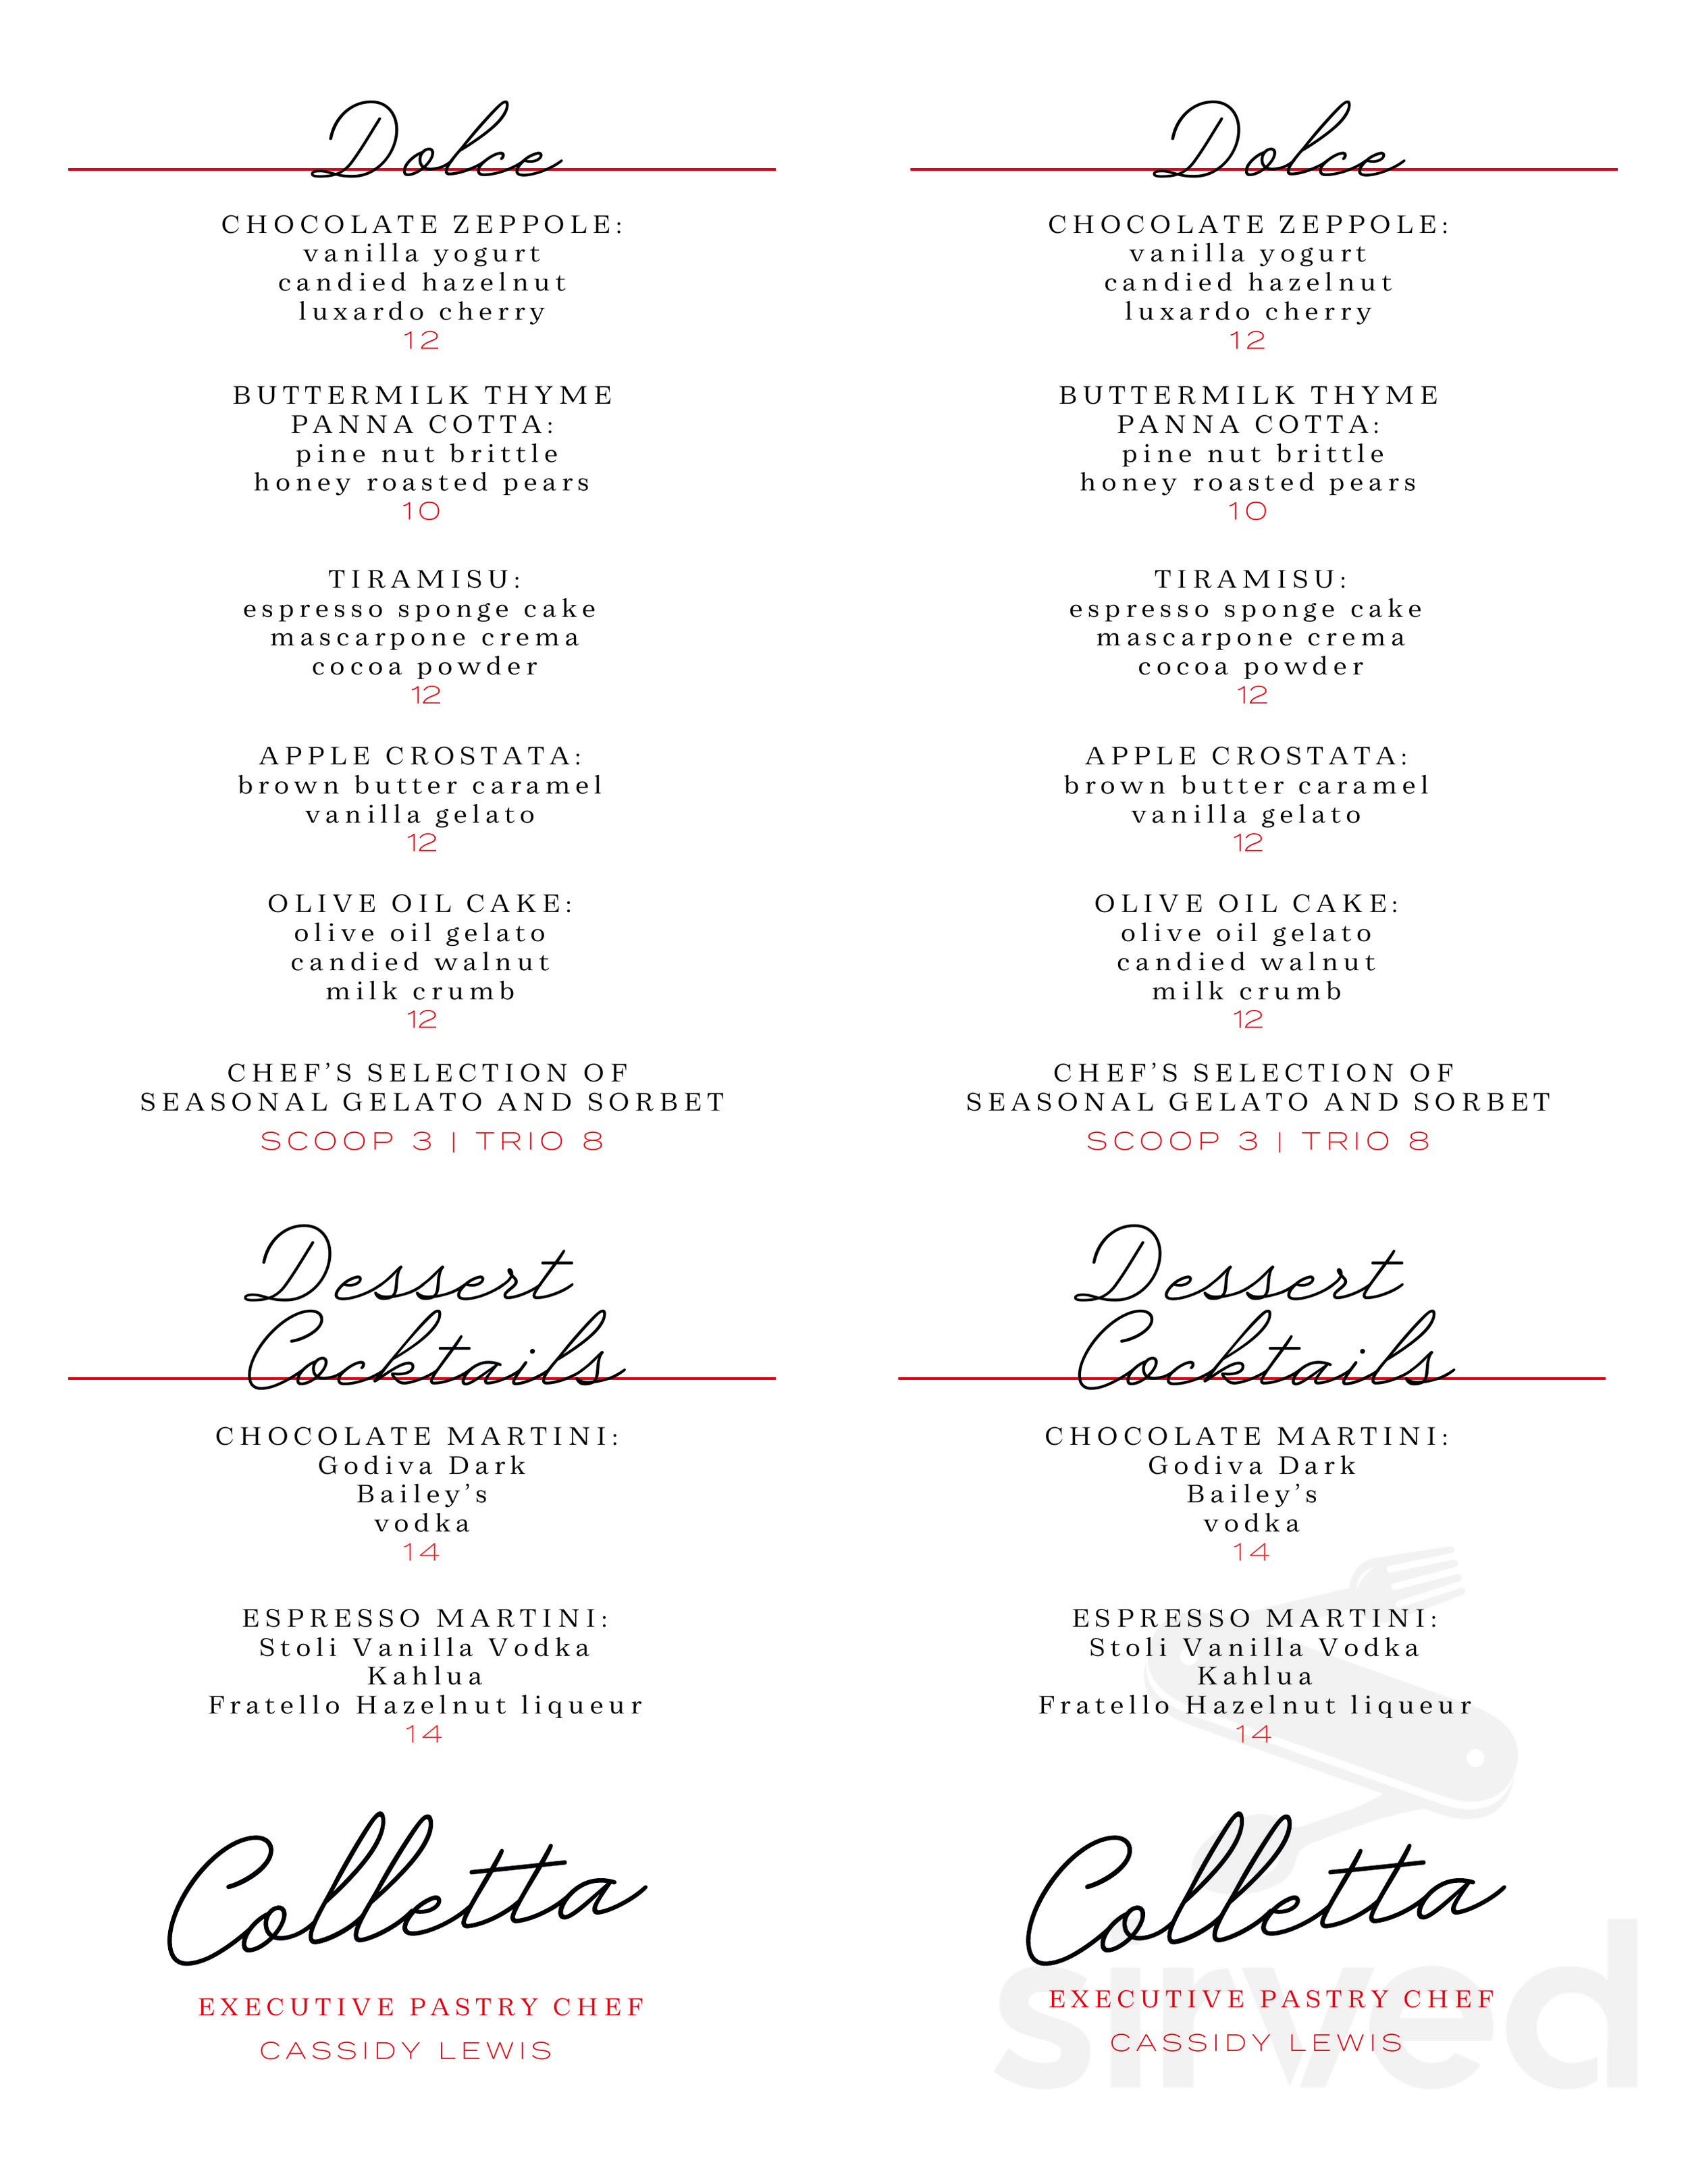 Dolce
CHOCOLATE ZEPPOLE:
vanilla yogurt
candied hazelnut
luxardo cherry
12
BUTTERMILK THYME
PANNA COTTA:
pine nut brittle
honey roasted pears
10
TIRAMISU:
espresso sponge cake
mascarpone crema
cocoa powder
12
APPLE CROSTATA:
brown butter caramel
vanilla gelato
12
OLIVE OIL CAKE:
olive oil gelato
candied walnut
milk crumb
12
CHEF’S SELECTION OF
SEASONAL GELATO AND SORBET
SCOOP 3 | TRIO 8
Dessert
Cocktails
CHOCOLATE MARTINI:
Godiva Dark
Bailey’s
vodka
14
ESPRESSO MARTINI:
Stoli Vanilla Vodka
Kahlua
Fratello Hazelnut liqueur
14
Colletta
EXECUTIVE PASTRY CHEF
CASSIDY LEWIS
Dolce
CHOCOLATE ZEPPOLE:
vanilla yogurt
candied hazelnut
luxardo cherry
12
BUTTERMILK THYME
PANNA COTTA:
pine nut brittle
honey roasted pears
10
TIRAMISU:
espresso sponge cake
mascarpone crema
cocoa powder
12
APPLE CROSTATA:
brown butter caramel
vanilla gelato
12
OLIVE OIL CAKE:
olive oil gelato
candied walnut
milk crumb
12
CHEF’S SELECTION OF
SEASONAL GELATO AND SORBET
SCOOP 3 | TRIO 8
Dessert
Cocktails
CHOCOLATE MARTINI:
Godiva Dark
Bailey’s
vodka
14
ESPRESSO MARTINI:
Stoli Vanilla Vodka
Kahlua
Fratello Hazelnut liqueur
14
Colletta
EXECUTIVE PASTRY CHEF
CASSIDY LEWIS
sirved